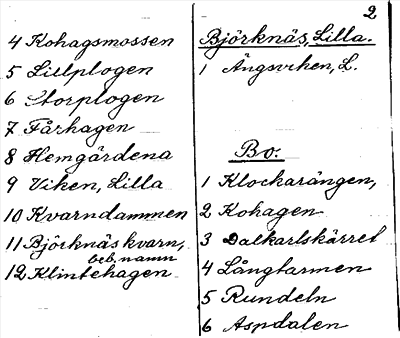 4 Kohagsmossen
5 Lillplogen
6 Storplogen
7 Fårhagen
8 Hemgärdena
9 Viken, Lilla
10 Kvarndammen
11 Björknäs kvarn,
beb.namn
12 Klintehagen
2
Björknäs, Lilla.
1 Ängsviken, L.
Bo.
1 Klockarängen,
2 Kohagen
3 Dalkarlskärret
4 Långtarmen
5 Rundeln
6 Aspdalen